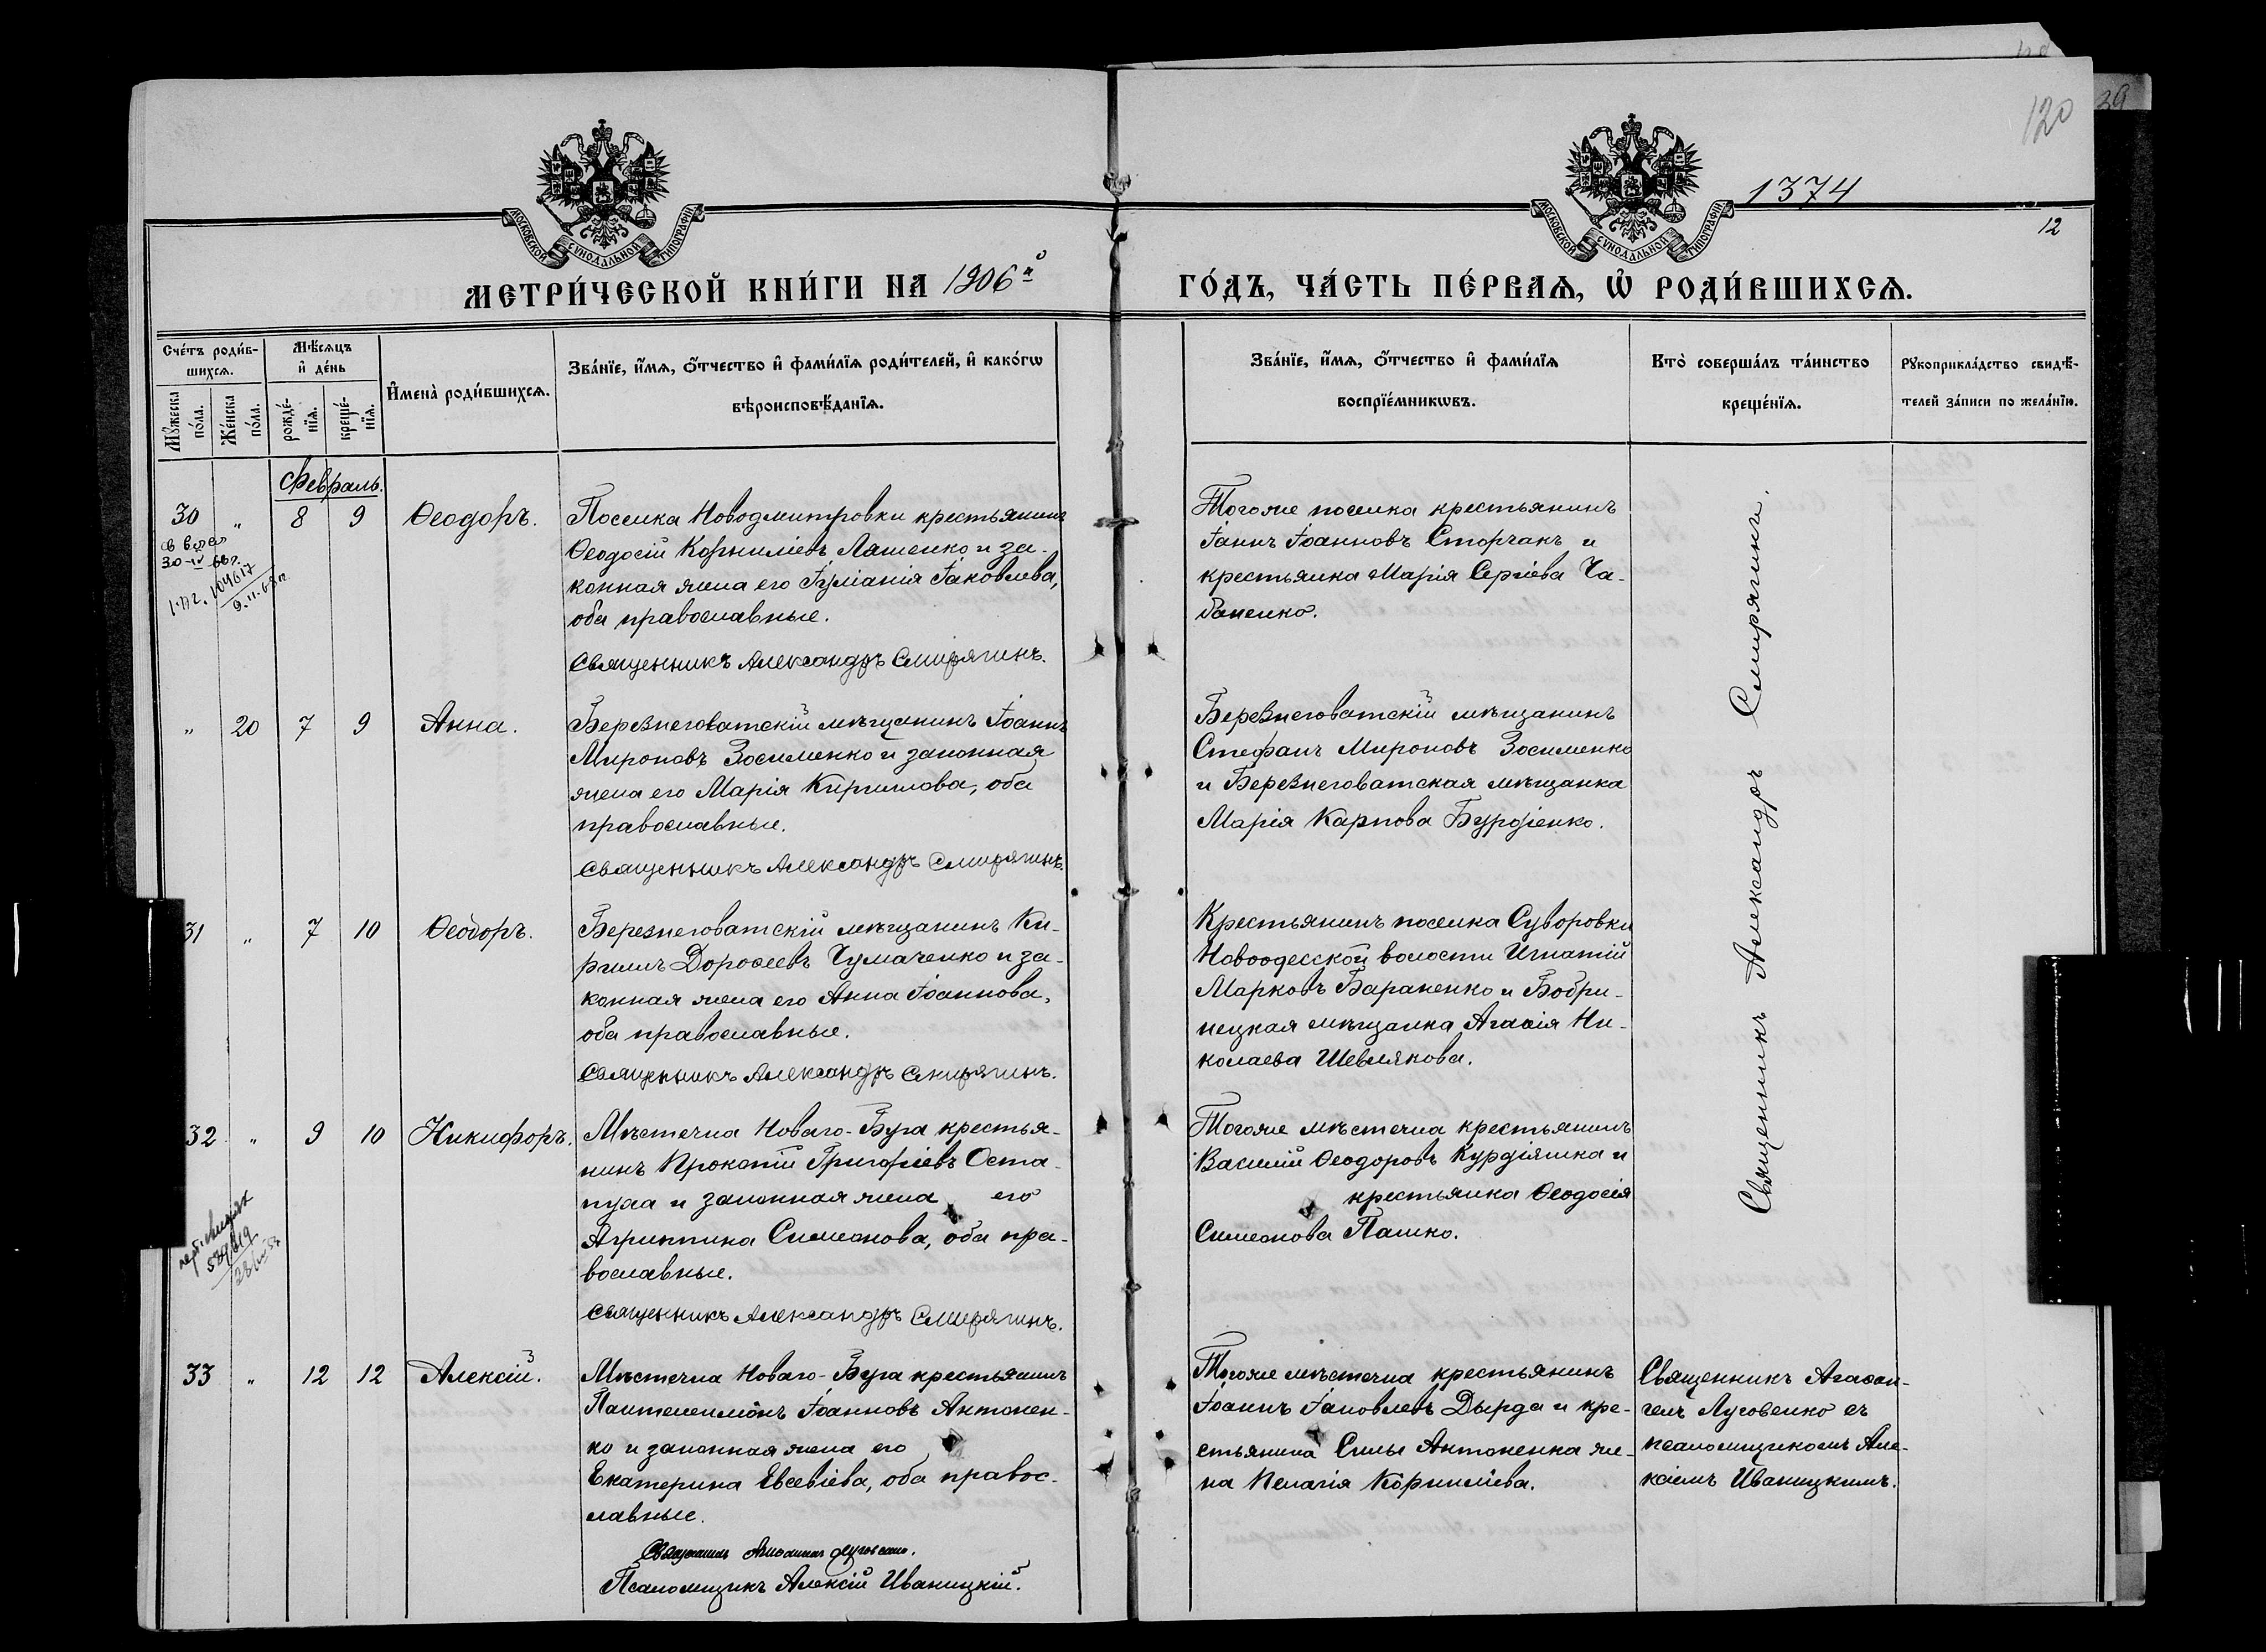 120
39
1374
12
МОСКОВСКОЙ СѴНОДАЛЬНОЙ ТИПОГРАФІИ
МОСКОВСКОЙ СѴНОДАЛЬНОЙ ТИПОГРАФІИ
МЕТРИ́ЧЕСКОЙ КНИ́ГИ НА 1906й
ГО́ДЪ, ЧА́СТЬ ПЕ́РВАѦ, Ѡ҆ РОДИ́ВШИХСѦ.
Сче́тъ роди́в-
шихсѧ.
Мꙋ́жеска по́ла.
Же́нска по́ла.
Мѣ́сѧцъ
и҆ де́нь
рожде́-
нїѧ.
креще́-
нїѧ.
И҆мена̀ роди́вшихсѧ.
Зва́нїе, и҆́мѧ, ѻ҆́тчество и҆ фами́лїѧ роди́телей, и҆ како́гѡ
вѣроисповѣ́данїѧ.
Зва́нїе, и҆́мѧ, ѻ҆́тчество и҆ фами́лїѧ
воспрїе́мникѡвъ.
Кто̀ соверша́лъ та́инство
креще́нїѧ.
Рꙋкоприкла́дство свидѣ́-
телей за́писи по жела́нїю.
Февраль.
30 " 8 9 Ѳеодоръ.
30-IV 66 г.
104617
9.II.68 г.
Поселка Новодмитровки крестьянинъ
Ѳеодосій Корниліевъ Ляшенко и за-
конная жена его Іуліанія Іаковлева,
оба православные.
Священникъ Александръ Смирягинъ.
Тогоже поселка крестьянинъ
Іаннъ Іоанновъ Сторчакъ и
крестьянка Марія Сергіева Ча-
баненко.
" 20 7 9 Анна.
Березнеговатскій мѣщанинъ Іоаннъ
Мироновъ Зосименко и законная
жена его Марія Кириллова, оба
православные.
Священникъ Александръ Смирягинъ.
Березнеговатскій мѣщанинъ
Стефанъ Мироновъ Зосименко
и Березнеговатская мѣщанка
Марія Карпова Бурдіенко.
31 " 7 10 Ѳеодоръ.
Березнеговатскій мѣщанинъ Ки-
риллъ Дороѳеевъ Чумаченко и за-
конная жена его Анна Іоаннова,
оба православные.
Священникъ Александръ Смирягинъ.
Крестьянинъ поселка Суворовки
Новоодесской волости Игнатій
Марковъ Бараненко и Бобри-
нецкая мѣщанка Агаѳія Ни-
колаева Шевлякова.
32 " 9 10 Никифоръ.
28/
Мѣстечка Новаго-Буга крестья-
нинъ Прокопій Григоріевъ Оста-
пула и законная жена его
Агриппина Симеонова, оба пра-
вославные.
Священникъ Александръ Смирягинъ.
Тогоже мѣстечка крестьянинъ
Василій Ѳеодоровъ Курдіяшка и
крестьянка Ѳеодосія
Симеонова Пашко.
Священникъ Александръ Смирягинъ.
33 " 12 12 Алексій.
Мѣстечка Новаго-Буга крестьянинъ
Пантелеимонъ Іоанновъ Антонен-
ко и законная жена его
Екатерина Евсевіева, оба правос-
лавные.
Священникъ Луговенко.
Псаломщикъ Алексій Иваницкій.
Тогоже мѣстечка крестьянинъ
Іоаннъ Іаковлевъ Дырда и кре-
стьянина Силы Антоненка же-
на Пелагія Корниліева.
Священникъ Агаѳан-
гелъ Луговенко съ
псаломщикомъ Але-
ксіемъ Иваницкимъ.